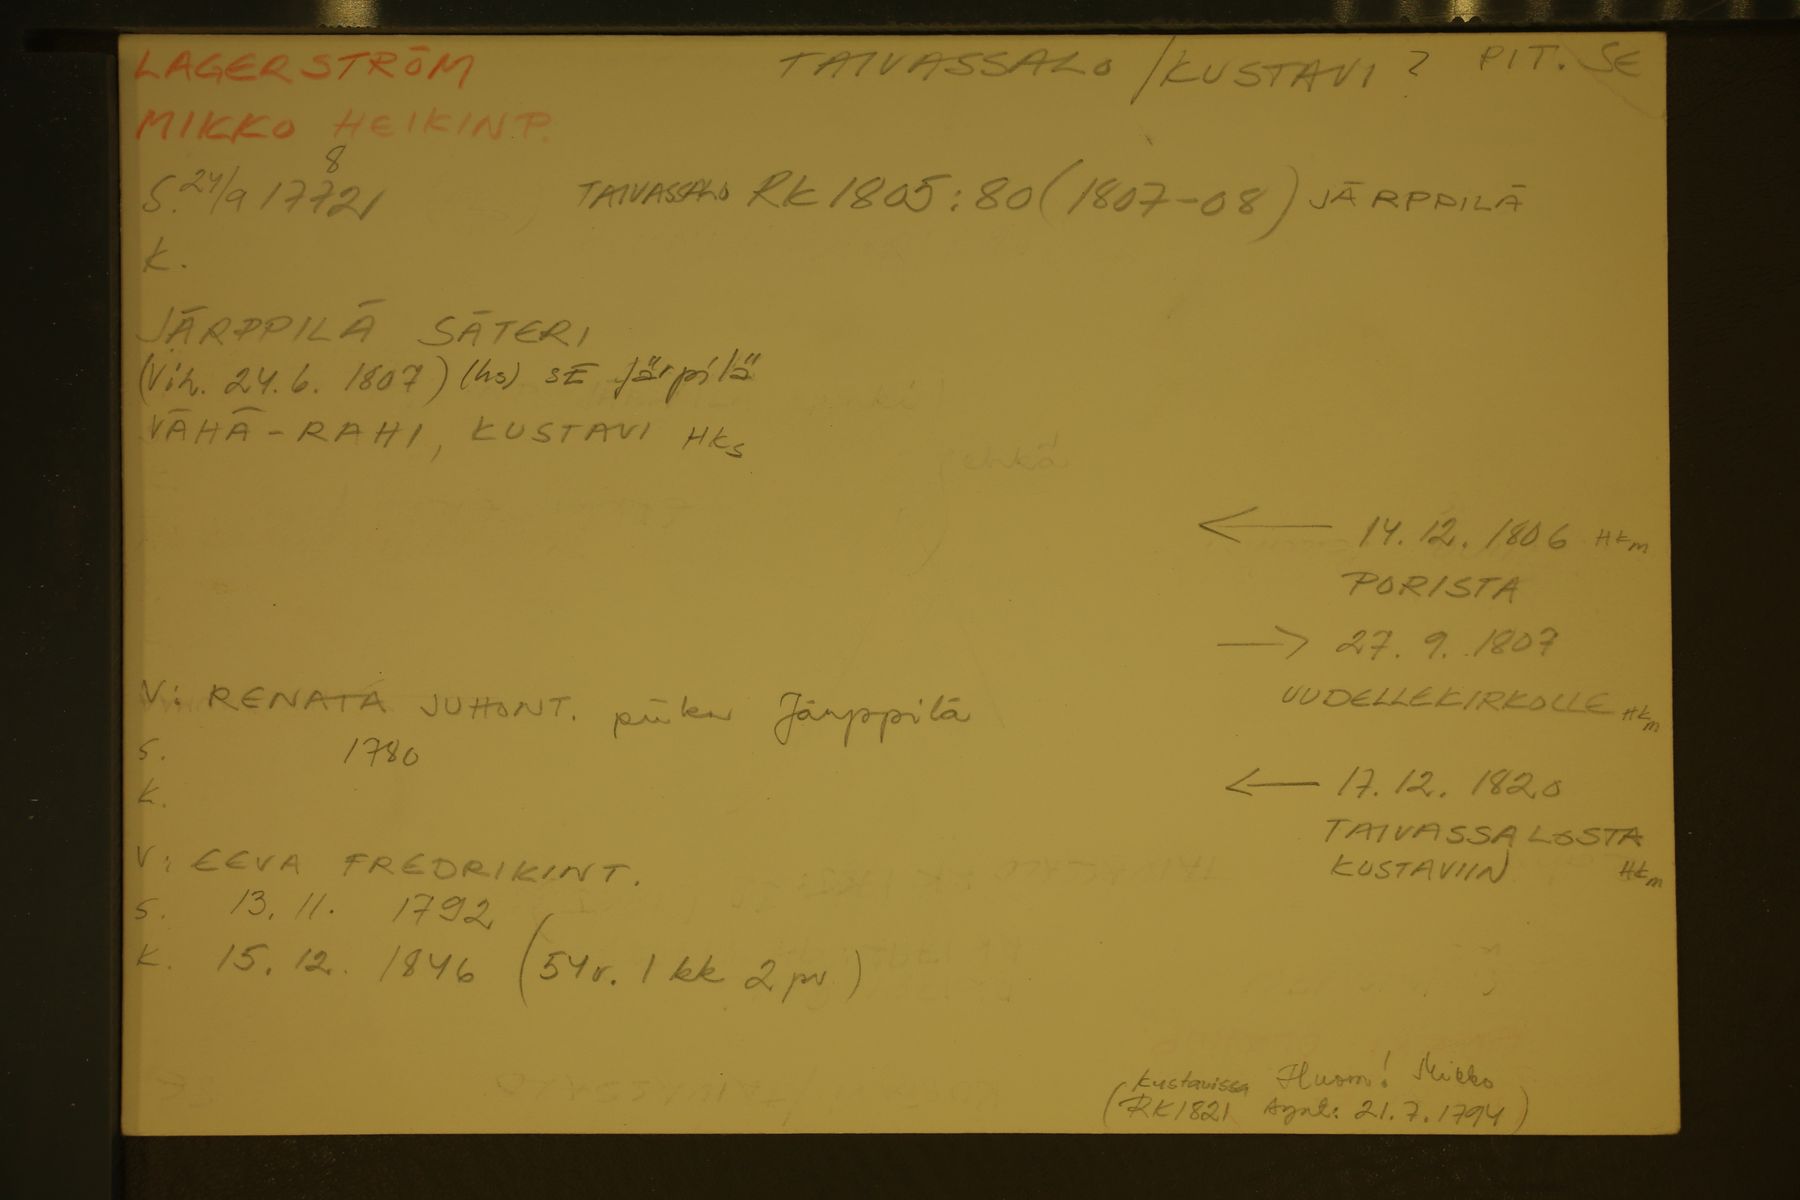 LAGERSTRÖM
TAIVASSALO / KUSTAVI ? PIT. SE
MIKKO HEIKINP.
8
S. 24/9 1772
TAIVASSALO RK 1805:80 (1807-08) JÄRPPILÄ
K.
JÄRPPILÄ SÄTERI
(Vih. 24.6. 1807) (hs) SE Järpilä
VÄHÄ-RAHI, KUSTAVI HKs
← 14.12.1806 HKm
PORISTA
→ 27.9.1807
UUDELLEKIRKOLLE HKm
V: RENATA JUHONT. piika Järppilä
S. 1780
K.
← 17.12.1820
TAIVASSALOSTA
KUSTAVIIN HKm
V: EEVA FREDRIKINT.
S. 13.11. 1792
K. 15.12. 1846 (54 v. 1 kk 2 pv)
Kustavissa Huom! Mikko
(RK 1821 synt: 21.7.1794)